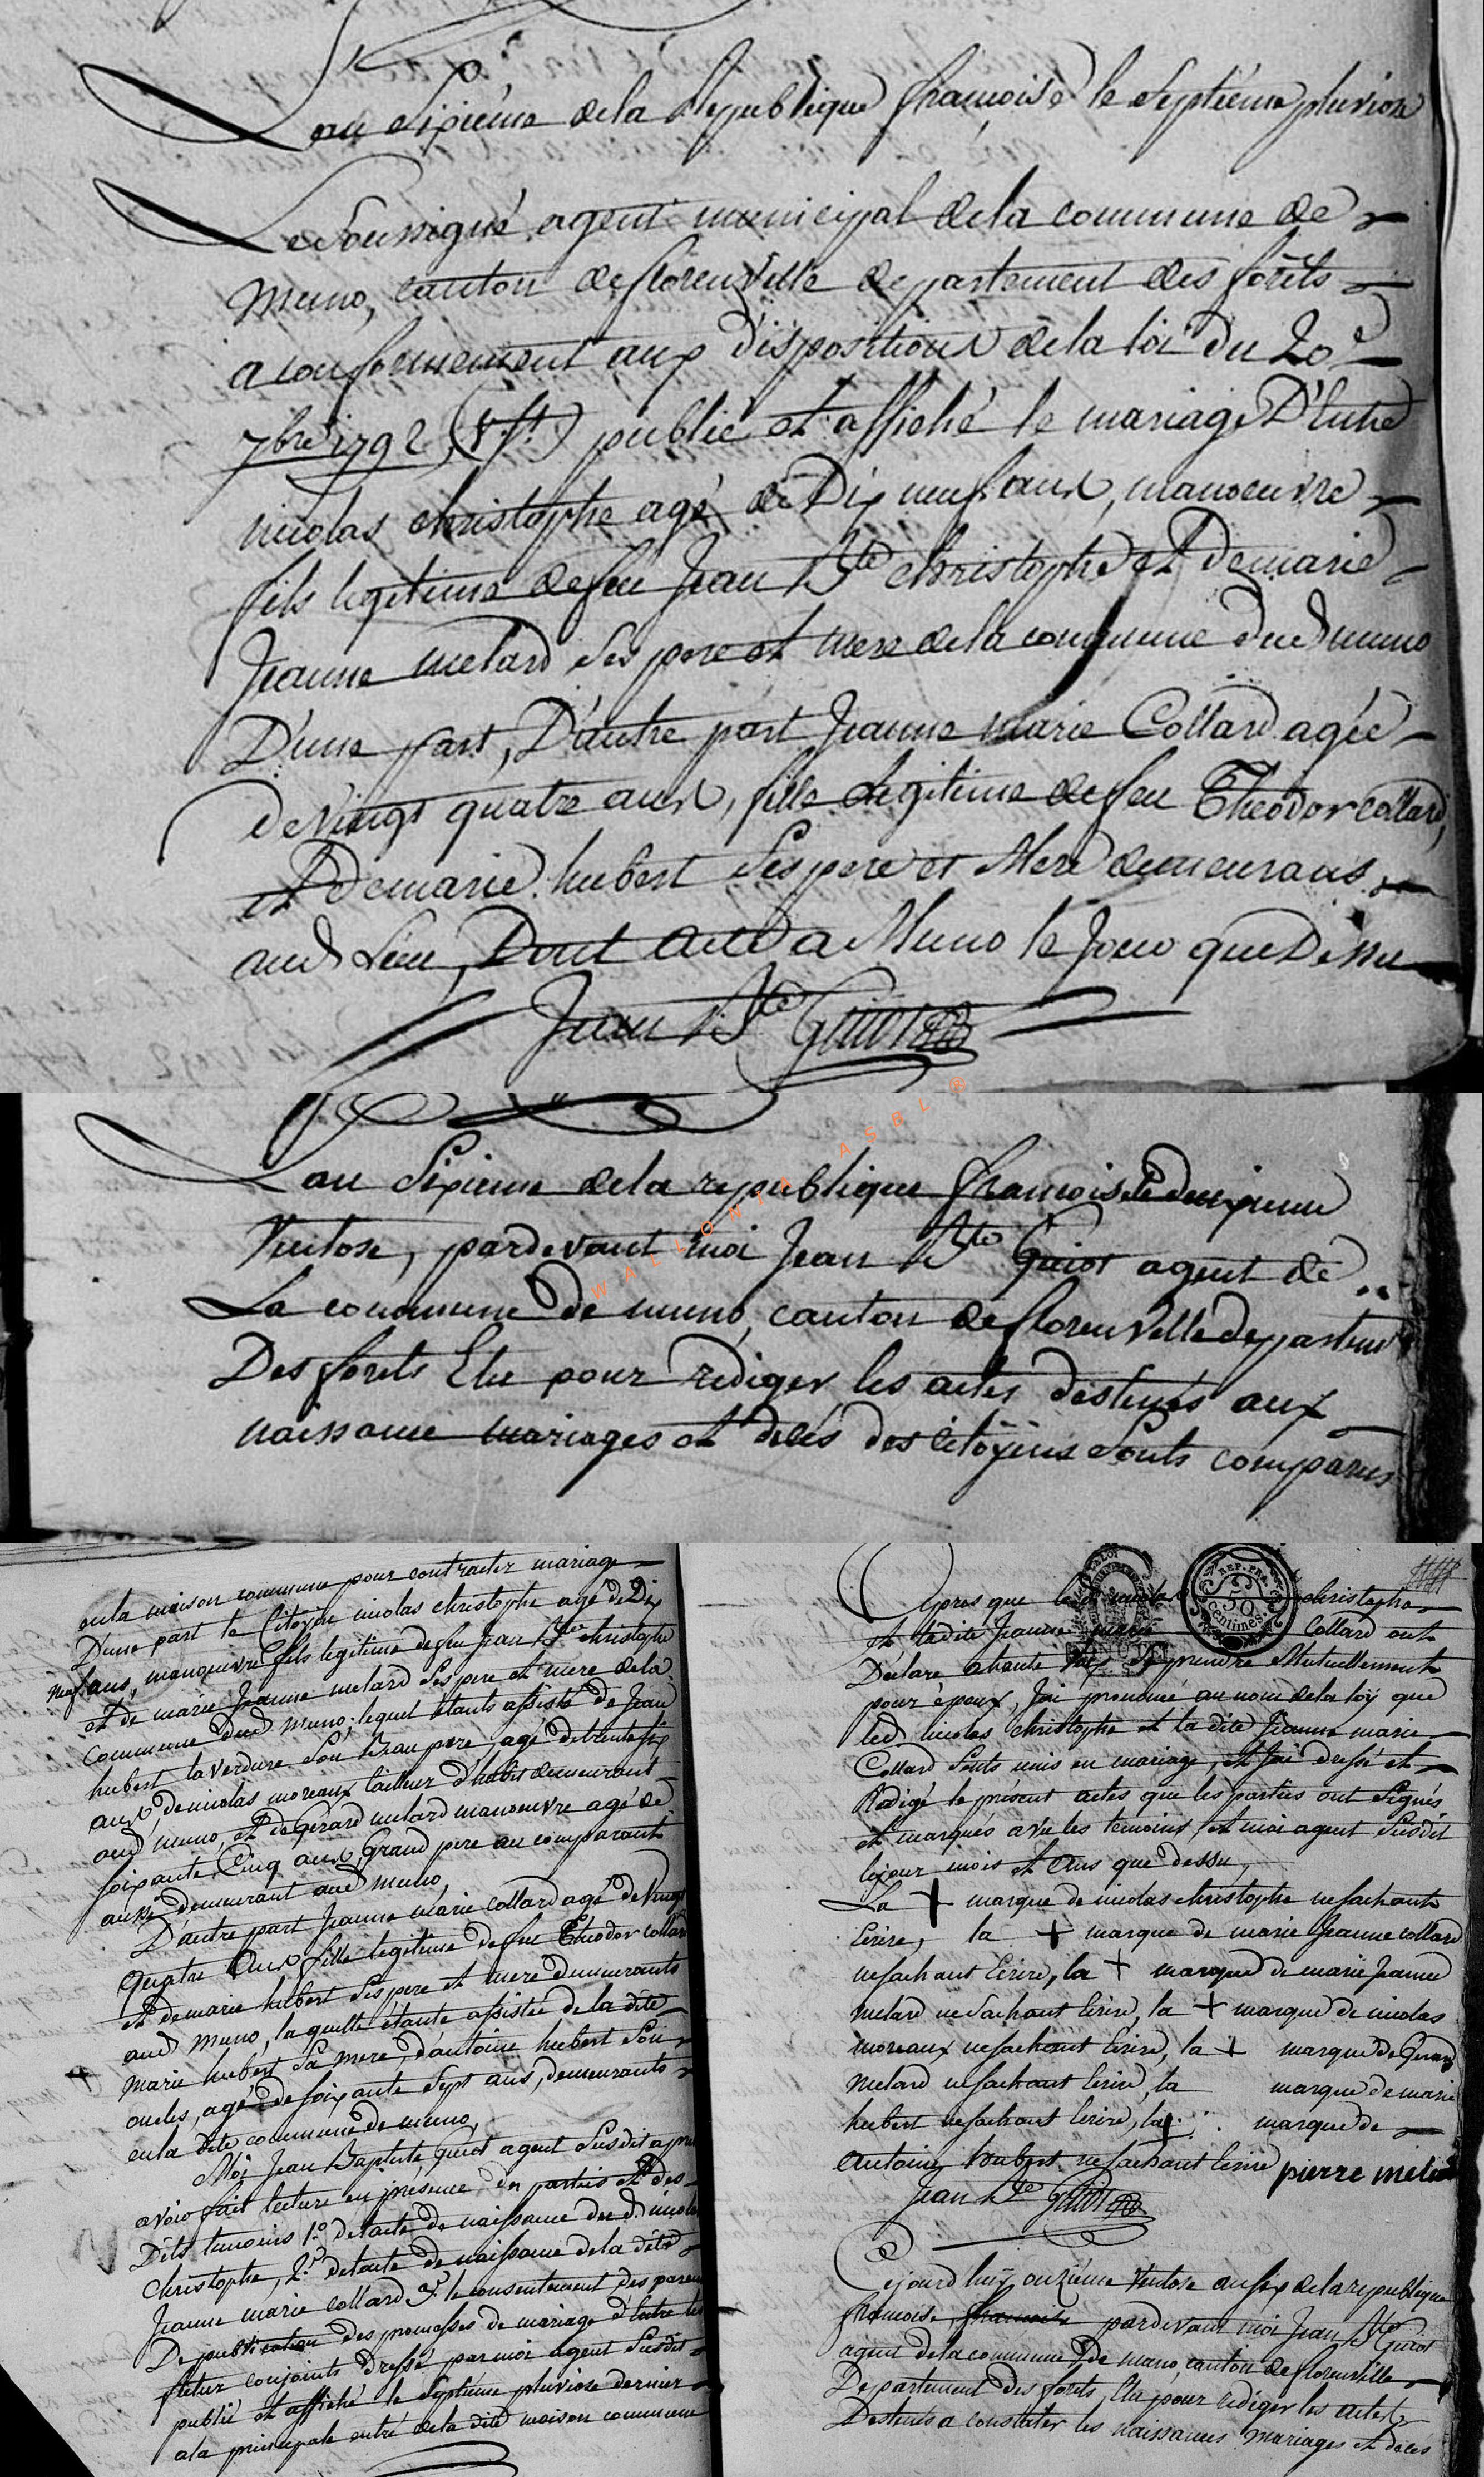 L'an sixieme de la Republique françoise le septieme pluviose
Le soussigné agent municipal de la commune de
Muno, canton de florenville departement des forêts
a conformement aux dispositions de la loi du 20e
7bre 1792 (V. st.) publié et affiché le mariage D'Entre
nicolas christophe agé de Dix neuf ans, manoeuvre
fils legitime de feu Jean Bte christophe et de marie
Jeanne melard ses pere et mere de la commune dud muno
D'une part, D'autre part Jeanne marie Collard agée
de vingt quatre ans, fille legitime de feu Théodor Collard,
et de marie hubert ses pere et Mere demeurans
aud Lieu, Dont acte a Muno le jour que Dessu
Jean Bte Guiot
WALLONIA ASBL ®
L'an sixieme de la republique françoise le deuxieme
Ventose, pardevant moi Jean Bte Guiot agent de
La commune de muno, canton de florenville departem
Des forêts Elu pour rediger les actes destinés aux
naissance mariages et decés des citoÿens sonts comparus
en la maison commune pour contracter mariage
D'une part le Citoÿen nicolas christophe agé de Dix
neuf ans, manoeuvre fils legitime de feu Jean Bte christophe
et de marie Jeanne melard ses pere et mere de la
commune dud muno, lequel étants assisté de Jean
hubert laverdure son Beau pere, agé de trente six
ans, de nicolas moreaux tailleur d'habit demeurant
aud muno, et de Gérard melard manoeuvre agé de
soixante Cinq ans, Grand pere au comparant
aussi demeurant aud muno,
D'autre part Jeanne marie collard agé de vingt
quatre Ans fille legitime de feu Théodor collard
et de marie hubert ses pere et mere demeurants
aud muno, la quelle étante assistée de la dite
marie hubert sa mere, d'antoine hubert son
oncles, agé de soixante sept ans, demeurants
en la dite commune de muno,
Moi Jean Baptiste Guiot agent susdit apres
avoir fait lecture en présence des parties et des
Dits temoins 1.o de l'acte de naissance dud. nicolas
christophe, 2.o de l'acte de naissance de la dite
Jeanne marie collard 3.o le consentement des parens
De publication des promesses de mariage d'Entre les
futur conjoints dressé par moi agent susdit
publié et affiché le septième pluviose dernier
a la principale entré de la dite maison commune
Apres que le christophe
et ladite Jeanne marie Collard ont
Déclaré a haute voix se prendre Mutuellement
pour époux, J'ai prononcé au nom de la loÿ que
led nicolas christophe et la dite Jeanne marie
Collard sonts unis en mariage, et J'ai dressé et
Rédigé le présent actes que les parties ont signés
et marqués avec les temoins, et moi agent susdit
les jour mois et Ans que dessu,
La + marque de nicolas christophe ne sachant
Ecrire, la + marque de marie Jeanne collard
ne sachant Ecrire, la + marque de marie Jeanne
melard ne sachant Ecrire, la + marque de nicolas
moreaux ne sachant Ecrire, la + marque de Gerard
melard ne sachant Ecrire, la marque de marie
hubert ne sachant Ecrire, la + marque de
Antoine hubert ne sachant Ecrire pierre melard
Jean Bte Guiot
Cejourd'huÿ onzième Ventose an six de la republique
françoise, pardevant moi Jean Bte Guiot
agent de la commune de muno, canton de florenville
Departement des forêts, Elu pour rediger les actes
Destinés a constater les naissances mariages et decés
REP. FRA.
50
centimes.